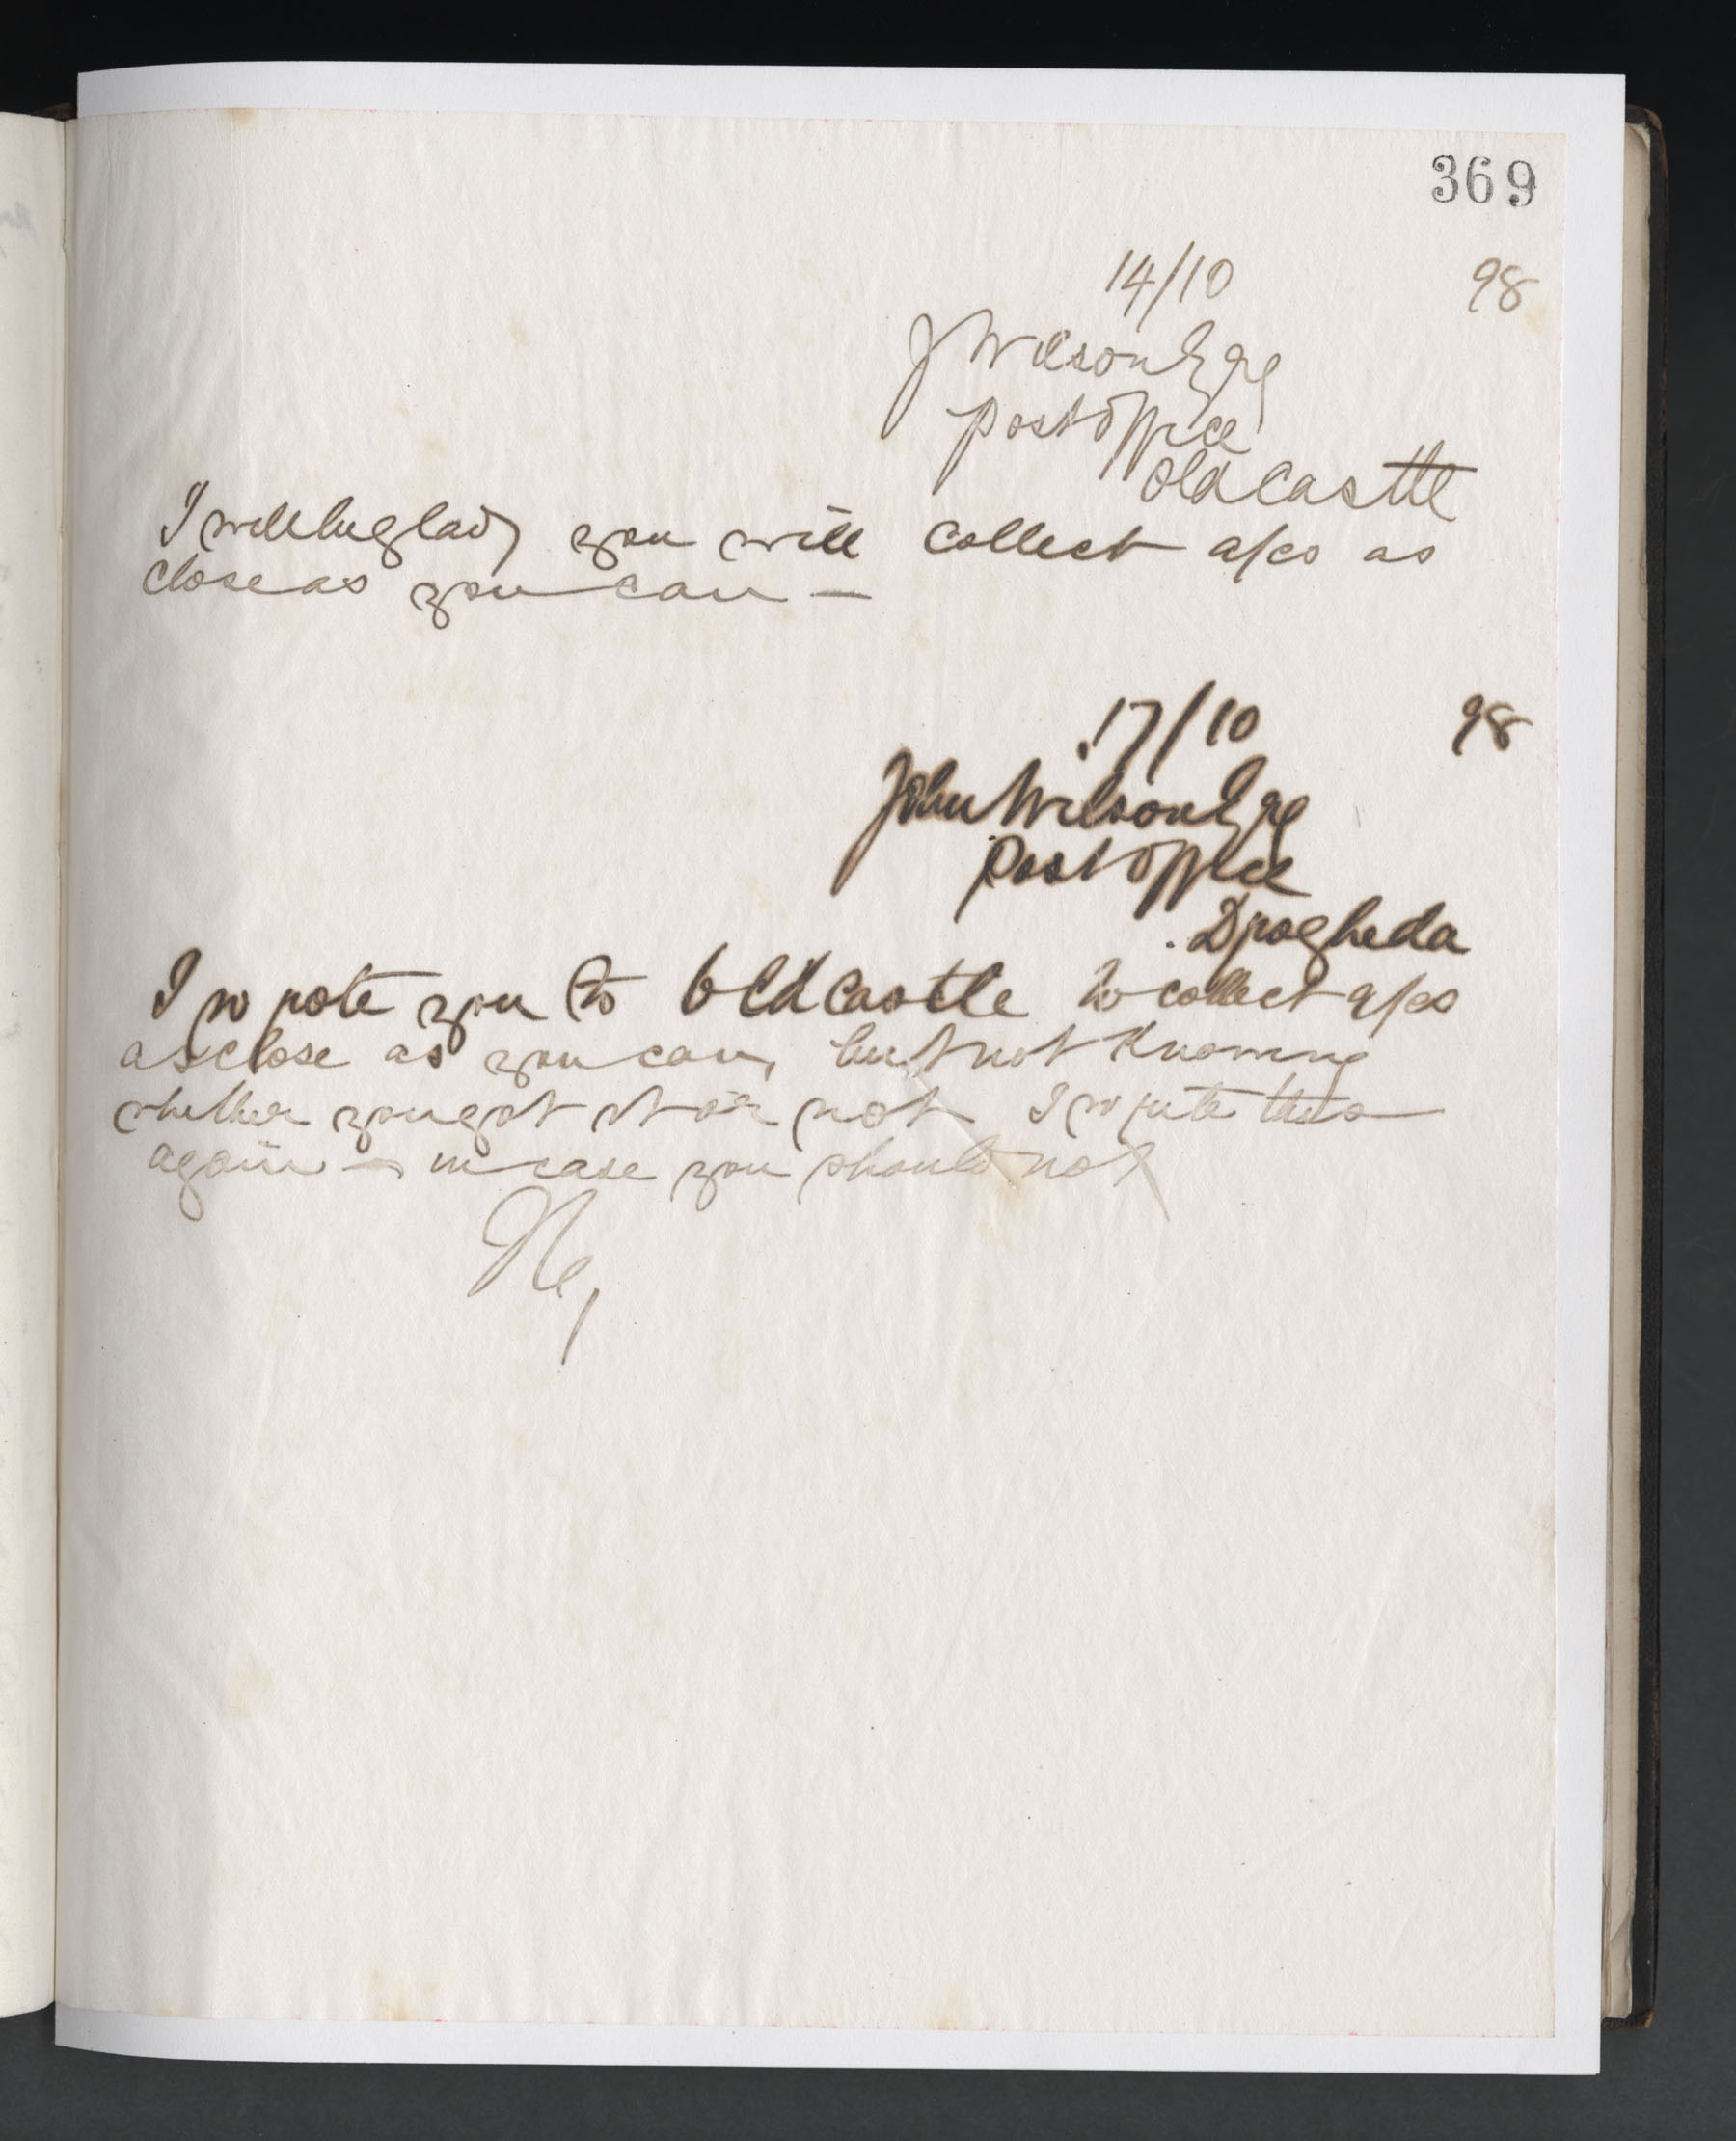 369
14/10 98
J Wilson Esq
Post Office
Oldcastle
I will be glad you will collect a/cs as
close as you can —
17/10 98
John Wilson Esq
Post Office
Drogheda
I wrote you to Oldcastle to collect a/cs
as close as you can, but not knowing
whether you got it or not I write this
again — in case you should not